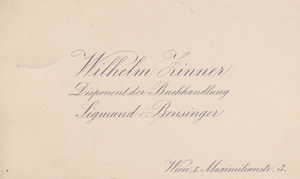 Wilhelm Zinner
Disponent der Buchhandlung
Sigmund Bensinger
Wien, I. Maximilianstr. 3.